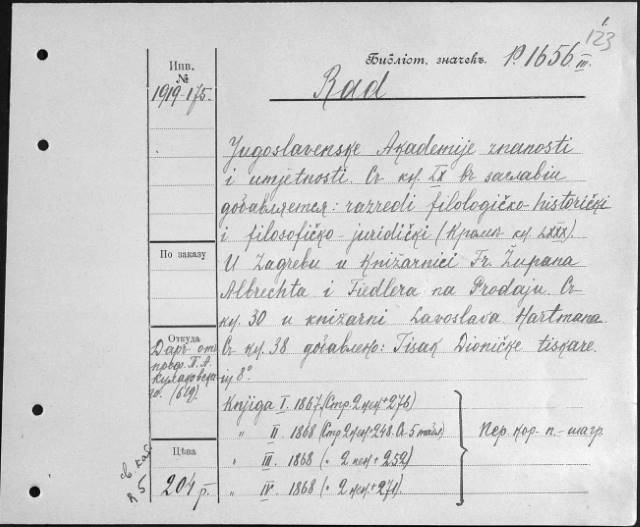 1.
123
Библіот. значекъ. P. 1656.
III.
Инв.
№
1919-175.
Rad
Jugoslavenske Akademije znanosti
i umjetnosti. Съ кн. LX въ заглавіи
добавляется: razredi filologičko-historički
i filosofičko-juridički (Кромѣ кн LXXX)
U Zagrebu u Knižarnici Fr. Župana
Albrechta i Fiedlera na Prodaju. Съ
кн. 30 u knižarni Lavoslava Hartmana
Съ кн. 38 добавлено: Tisak Dioničke tiskare.
in 8°
По заказу
Откуда
Даръ отъ
проф. П. А.
Кулаковска-
го.
Цѣна
204 р.
Knjiga I. 1867. (Стр. 2 нен + 276)
" II. 1868 (Стр 2 нен + 248. Съ 5 табл)
" III. 1868 (" 2 нен + 252)
" IV. 1868 (" 2 нен + 271)
Пер. кор. п.-шагр.